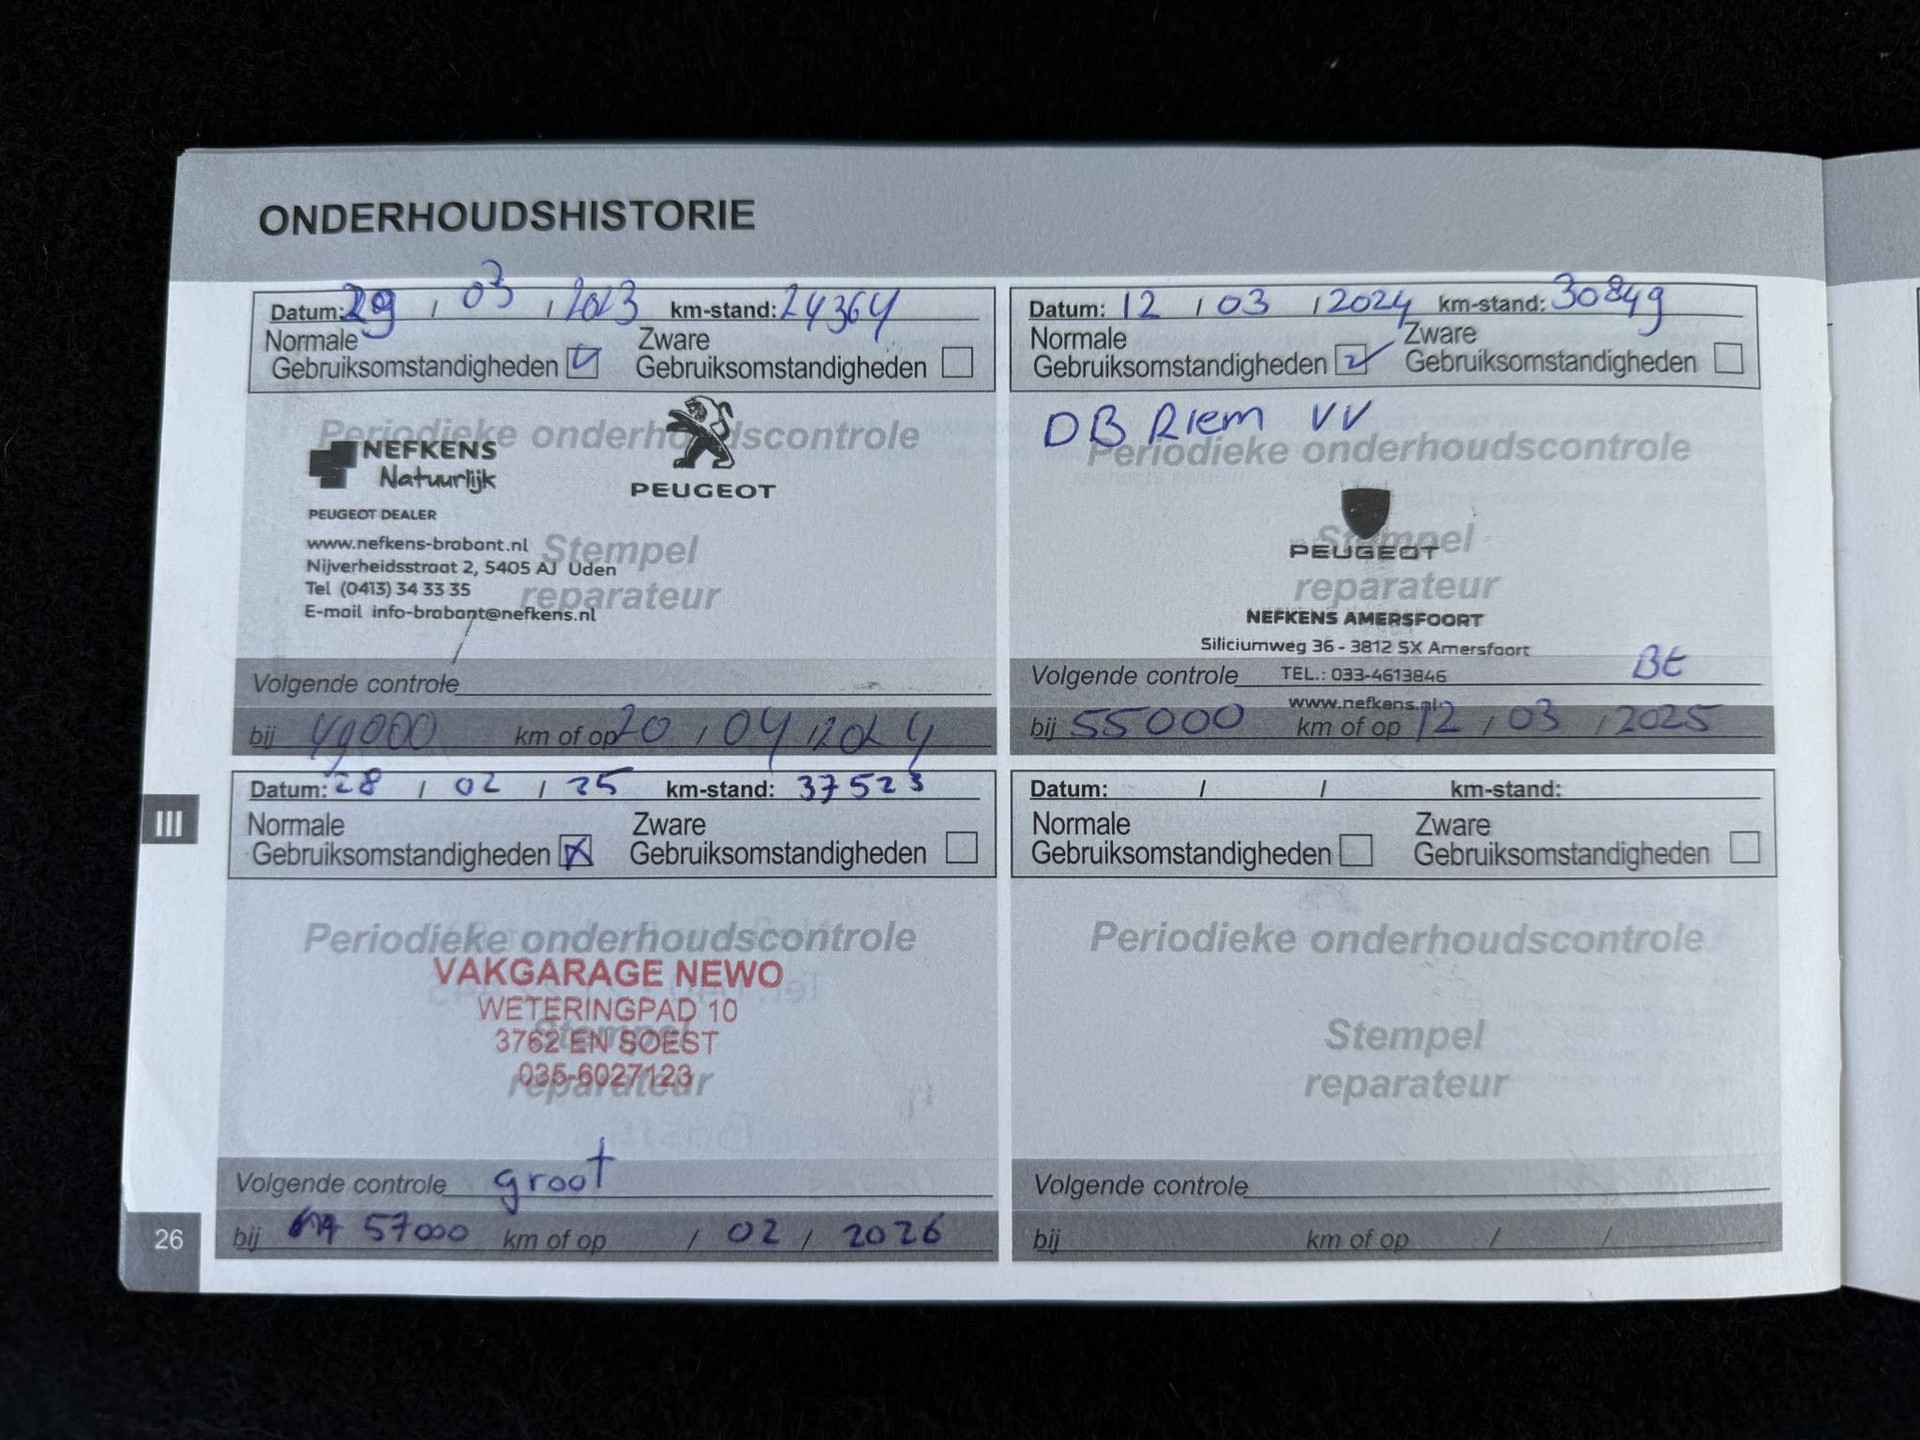 ONDERHOUDSHISTORIE
Datum: 29 / 03 / 2023 km-stand: 24364
Normale Zware
Gebruiksomstandigheden Gebruiksomstandigheden
Periodieke onderhoudscontrole
NEFKENS
Natuurlijk
PEUGEOT
PEUGEOT DEALER
www.nefkens-brabant.nl
Nijverheidsstraat 2, 5405 AJ Uden
Tel (0413) 34 33 35
E-mail info-brabant@nefkens.nl
Stempel
reparateur
Volgende controle
bij 49000 km of op 20 / 04 / 2024
Datum: 12 / 03 / 2024 km-stand: 30849
Normale Zware
Gebruiksomstandigheden Gebruiksomstandigheden
DB Riem VV
Periodieke onderhoudscontrole
Stempel
PEUGEOT
reparateur
NEFKENS AMERSFOORT
Siliciumweg 36 - 3812 SX Amersfoort
Volgende controle TEL.: 033-4613846 BE
www.nefkens.nl
bij 55000 km of op 12 / 03 / 2025
Datum: 28 / 02 / 25 km-stand: 37523
Normale Zware
Gebruiksomstandigheden Gebruiksomstandigheden
Periodieke onderhoudscontrole
VAKGARAGE NEWO
WETERINGPAD 10
3762 EN SOEST
035-6027123
Stempel
reparateur
Volgende controle groot
bij 57000 km of op / 02 / 2026
Datum: / / km-stand:
Normale Zware
Gebruiksomstandigheden Gebruiksomstandigheden
Periodieke onderhoudscontrole
Stempel
reparateur
Volgende controle
bij km of op / /
III
26